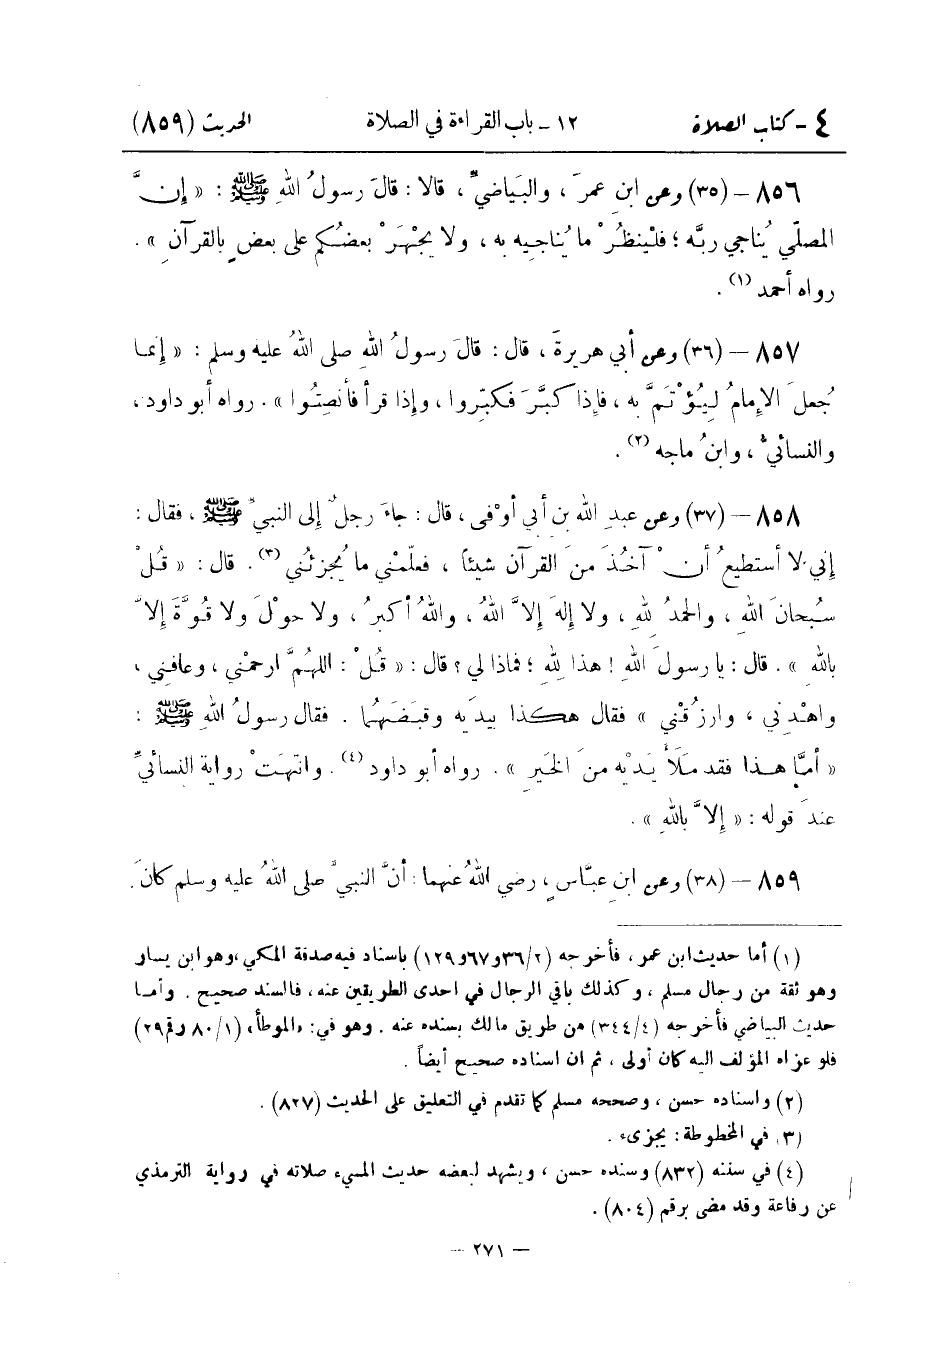 ٤ - كتاب الصلاة ١٢ - باب القراءة في الصلاة الحديث (٨٥٩)
٨٥٦ - (٣٥) وعن ابن عمرَ ، والبَياضيِّ ، قالا : قالَ رسولُ اللهِ ﷺ : « إِنَّ
المصلّي يُناجي ربَّه ؛ فلْينظُرْ ما يُناجيه به ، ولا يجْهَرْ بعضُكم على بعضٍ بالقرآنِ » .
رواه أحمد (١) .
٨٥٧ - (٣٦) وعن أبي هريرةَ ، قال : قالَ رسولُ اللهِ صلى اللهُ عليه وسلم : « إِنما
جُعلَ الإِمامُ لِيُؤْتَمَّ به ، فإِذا كبَّرَ فكبِّروا ، وإِذا قرأ فأنصِتُوا » . رواه أبو داود ،
والنسائيُّ ، وابنُ ماجه (٢) .
٨٥٨ - (٣٧) وعن عبدِ الله بن أبي أوْفى ، قال : جاءَ رجلٌ إِلى النبيِّ ﷺ ، فقال :
إِني لا أستطيعُ أنْ آخُذَ منَ القرآن شيئاً ، فعلّمْني ما يُجزئُني (٣) . قال : « قُلْ
سُبحانَ اللهِ ، والحمدُ للهِ ، ولا إِلهَ إِلاَّ اللهُ ، واللهُ أكبرُ ، ولا حوْلَ ولا قُوَّةَ إِلاَّ
باللهِ » . قال : يا رسولَ اللهِ ! هذا للهِ ؛ فماذا لي ؟ قال : « قُلْ : اللهُمَّ ارحمْني ، وعافِني ،
واهْدِني ، وارزُقْني » فقال هكذا بيدَيه وقبَضَهُما . فقال رسولُ اللهِ ﷺ :
« أمَّا هذا فقد مَلَأَ يَدَيْه منَ الخَيرِ » . رواه أبو داود (٤) . وانتهَتْ رواية النسائيِّ
عندَ قوله : « إِلاَّ باللهِ » .
٨٥٩ - (٣٨) وعن ابنِ عبَّاسٍ ، رضي اللهُ عنهما : أنَّ النبيَّ صلى اللهُ عليه وسلم كانَ
(١) أما حديث ابن عمر ، فأخرجه (٣٦/٢ و٦٧ و١٢٩) بإسناد فيه صدقة المكي ، وهو ابن يسار
وهو ثقة من رجال مسلم ، وكذلك باقي الرجال في احدى الطريقين عنه ، فالسند صحيح . وأما
حديث البياضي فأخرجه (٣٤٤/٤) من طريق مالك بسنده عنه . وهو في : «الموطأ» (٨٠/١ رقم ٢٩)
فلو عزاه المؤلف اليه كان أولى ، ثم ان اسناده صحيح أيضاً .
(٢) واسناده حسن ، وصححه مسلم كما تقدم في التعليق على الحديث (٨٢٧) .
(٣) في المخطوطة : يجزىء .
(٤) في سننه (٨٣٢) وسنده حسن ، ويشهد لبعضه حديث المسيء صلاته في رواية الترمذي
عن رفاعة وقد مضى برقم (٨٠٤) .
- ٢٧١ -